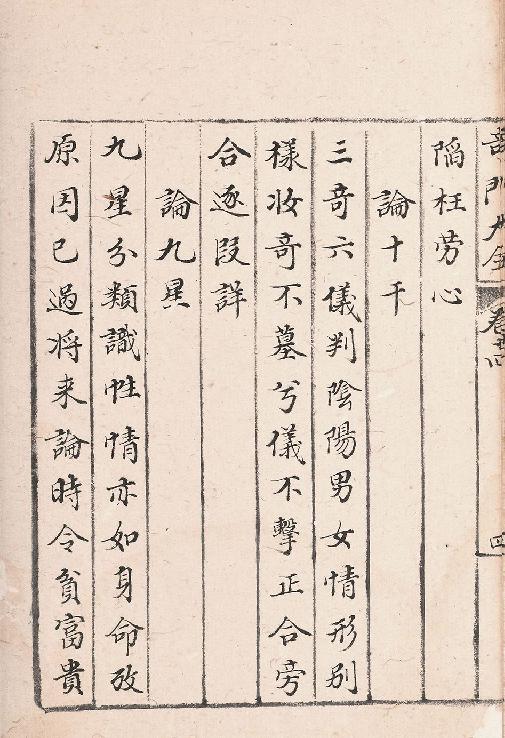 門大全
卷廿四
四
陷枉勞心
論十干
三奇六儀判陰陽男女情形別
樣妆奇不墓兮儀不擊正合旁
合逐段詳
論九星
九星分類識性情亦如身命攷
原因已過将来論時令貧富貴